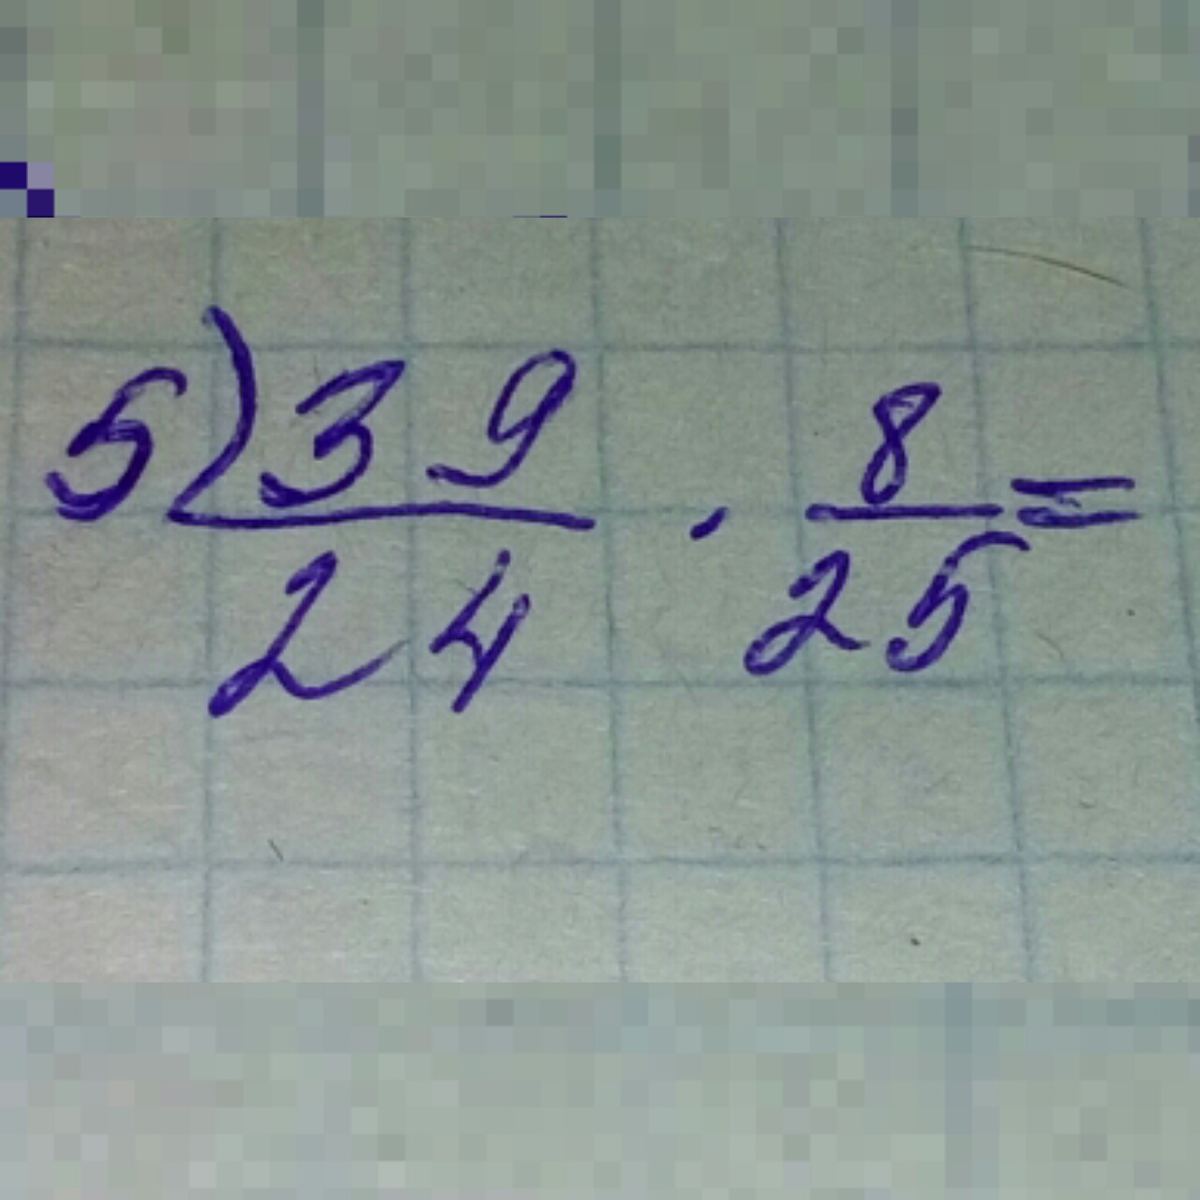 5) 39/24 · 8/25 =